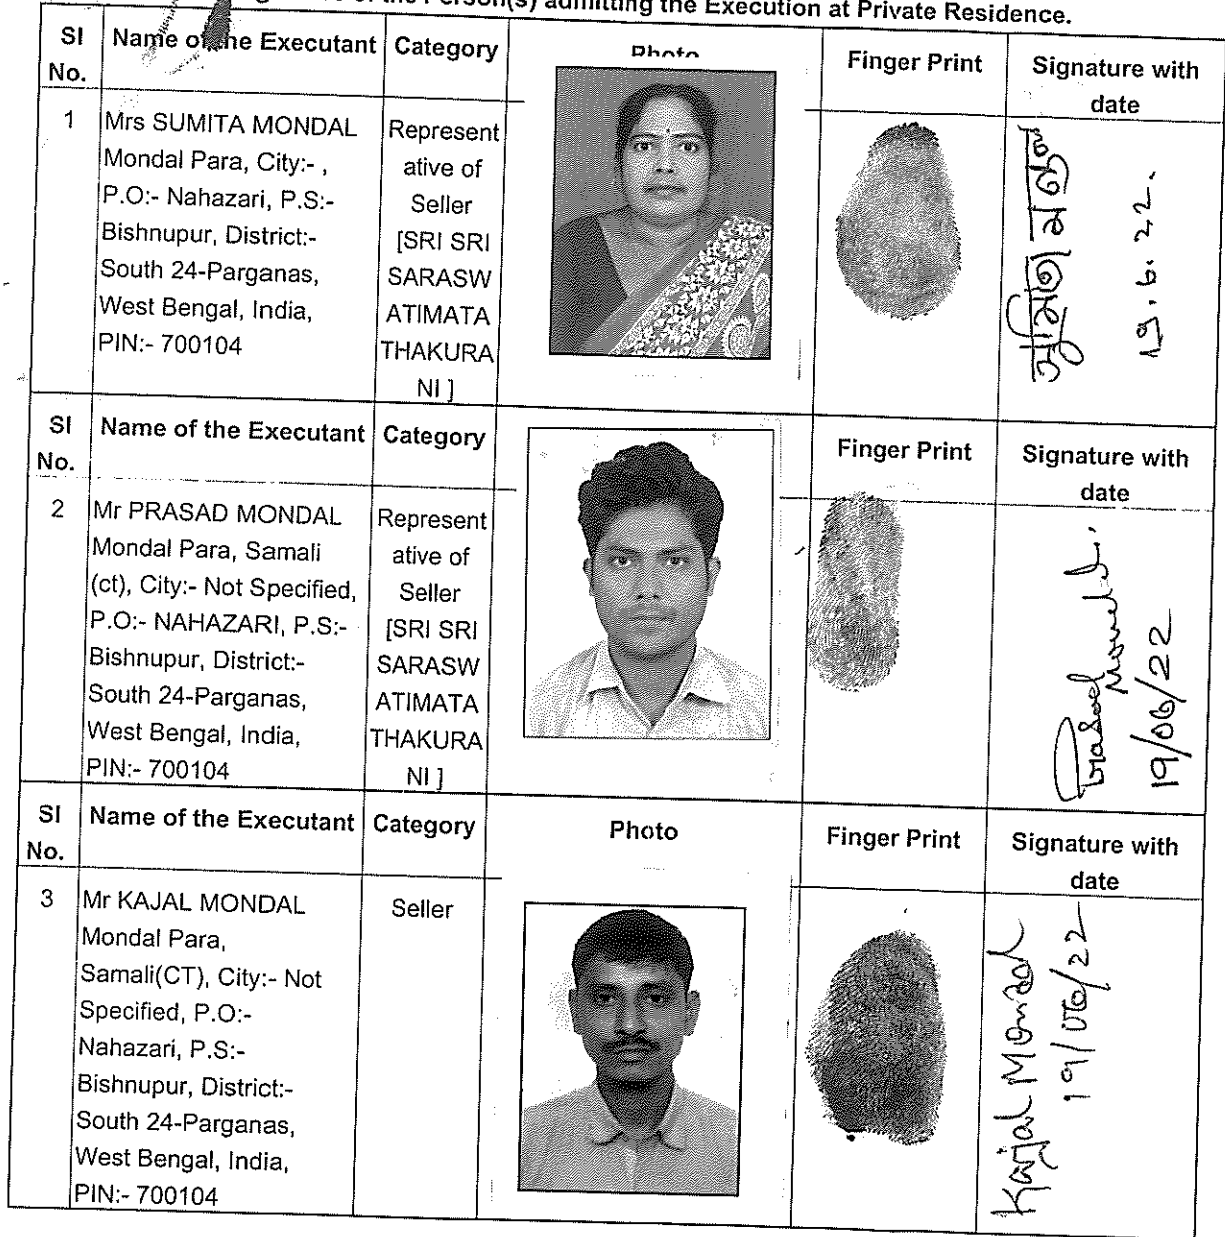 of the Person(s) admitting the Execution at Private Residence.
SI No. Name of the Executant Category Photo Finger Print Signature with date
1
Mrs SUMITA MONDAL
Mondal Para, City:- ,
P.O:- Nahazari, P.S:-
Bishnupur, District:-
South 24-Parganas,
West Bengal, India,
PIN:- 700104
Represent
ative of
Seller
[SRI SRI
SARASW
ATIMATA
THAKURA
NI ]
সুমিতা মণ্ডল
১৯.৬.২২.
SI No. Name of the Executant Category Finger Print Signature with date
2
Mr PRASAD MONDAL
Mondal Para, Samali
(ct), City:- Not Specified,
P.O:- NAHAZARI, P.S:-
Bishnupur, District:-
South 24-Parganas,
West Bengal, India,
PIN:- 700104
Represent
ative of
Seller
[SRI SRI
SARASW
ATIMATA
THAKURA
NI ]
Prasad Mondal.
19/06/22
SI No. Name of the Executant Category Photo Finger Print Signature with date
3
Mr KAJAL MONDAL
Mondal Para,
Samali(CT), City:- Not
Specified, P.O:-
Nahazari, P.S:-
Bishnupur, District:-
South 24-Parganas,
West Bengal, India,
PIN:- 700104
Seller
Kajal Mondal
19/06/22